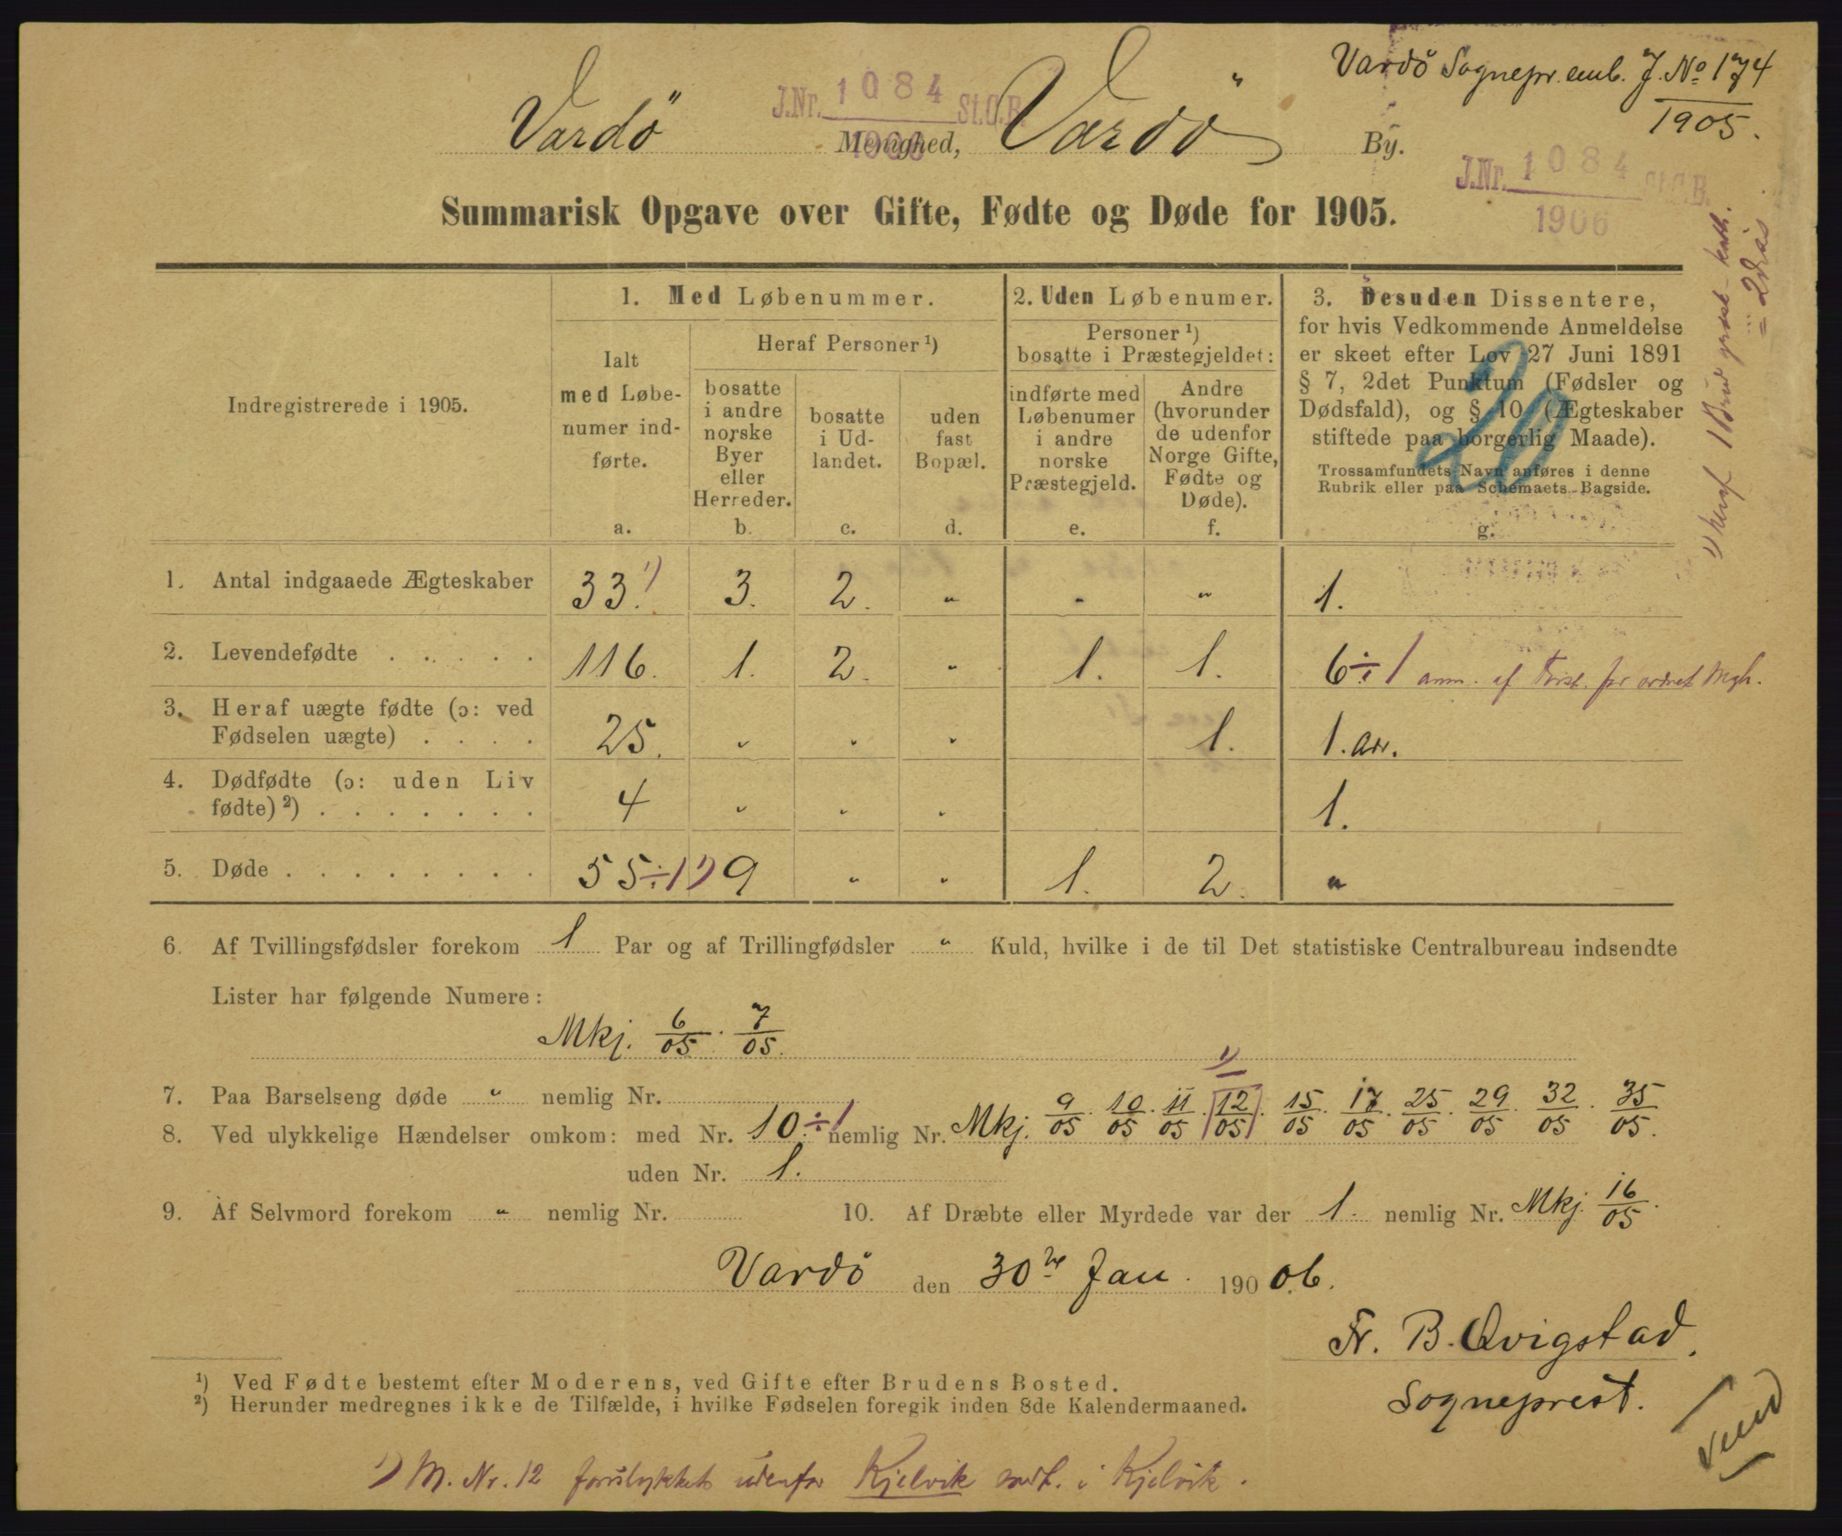 Vardö Sognepr. emb. J. No 174
1905.
J.Nr. 1084 St.C.B.
1906
Vardö Menighed, Vardö By.
J.Nr. 1084 St.C.B.
1906
Summarisk Opgave over Gifte, Fødte og Døde for 1905.
Indregistrerede i 1905.
1. Med Løbenummer.
Ialt
med Løbe-
numer ind-
førte.
a.
Heraf Personer ¹)
bosatte
i andre
norske
Byer
eller
Herreder.
b.
bosatte
i Ud-
landet.
c.
uden
fast
Bopæl.
d.
2. Uden Løbenumer.
Personer ¹)
bosatte i Præstegjeldet:
indførte med
Løbenumer
i andre
norske
Præstegjeld.
e.
Andre
(hvorunder
de udenfor
Norge Gifte,
Fødte og
Døde).
f.
3. Desuden Dissentere,
for hvis Vedkommende Anmeldelse
er skeet efter Lov 27 Juni 1891
§ 7, 2det Punktum (Fødsler og
Dødsfald), og § 10 (Ægteskaber
stiftede paa borgerlig Maade).
Trossamfundets Navn anføres i denne
Rubrik eller paa Schemaets Bagside.
g.
20
1) heraf 1 Brud græsk-kath.
1. Antal indgaaede Ægteskaber 33. ¹) 3. 2. " " " 1.
2. Levendefødte . . . . . 116. 1. 2. " 1. 1. 6 ÷ 1 anm. af Forst. for ordnet Mgh.
3. Heraf uægte fødte (ɔ: ved
Fødselen uægte) . . . . 25. " " " 1. 1.
4. Dødfødte (ɔ: uden Liv
fødte) ²) . . . . . . . 4 " " " 1.
5. Døde . . . . . . . . 55 ÷ 1 ¹) 9 " " 1. 2. "
6. Af Tvillingsfødsler forekom 1 Par og af Trillingfødsler " Kuld, hvilke i de til Det statistiske Centralbureau indsendte
Lister har følgende Numere:
Mkj. 6/05. 7/05.
7. Paa Barselseng døde " nemlig Nr.
8. Ved ulykkelige Hændelser omkom: med Nr. 10 ÷ 1 nemlig Nr. Mkj. 9/05. 10/05. 11/05. 12/05 ¹). 15/05. 17/05. 25/05. 29/05. 32/05. 35/05.
uden Nr. 1.
9. Af Selvmord forekom " nemlig Nr. 10. Af Dræbte eller Myrdede var der 1. nemlig Nr. Mkj. 16/05.
Vardö den 30te Jan. 190 06.
Fr. B. Qvigstad.
Sogneprest.
¹) Ved Fødte bestemt efter Moderens, ved Gifte efter Brudens Bosted.
²) Herunder medregnes ikke de Tilfælde, i hvilke Fødselen foregik inden 8de Kalendermaaned.
1) M. Nr. 12 forulykket udenfor Kjelvik medt. i Kjelvik.